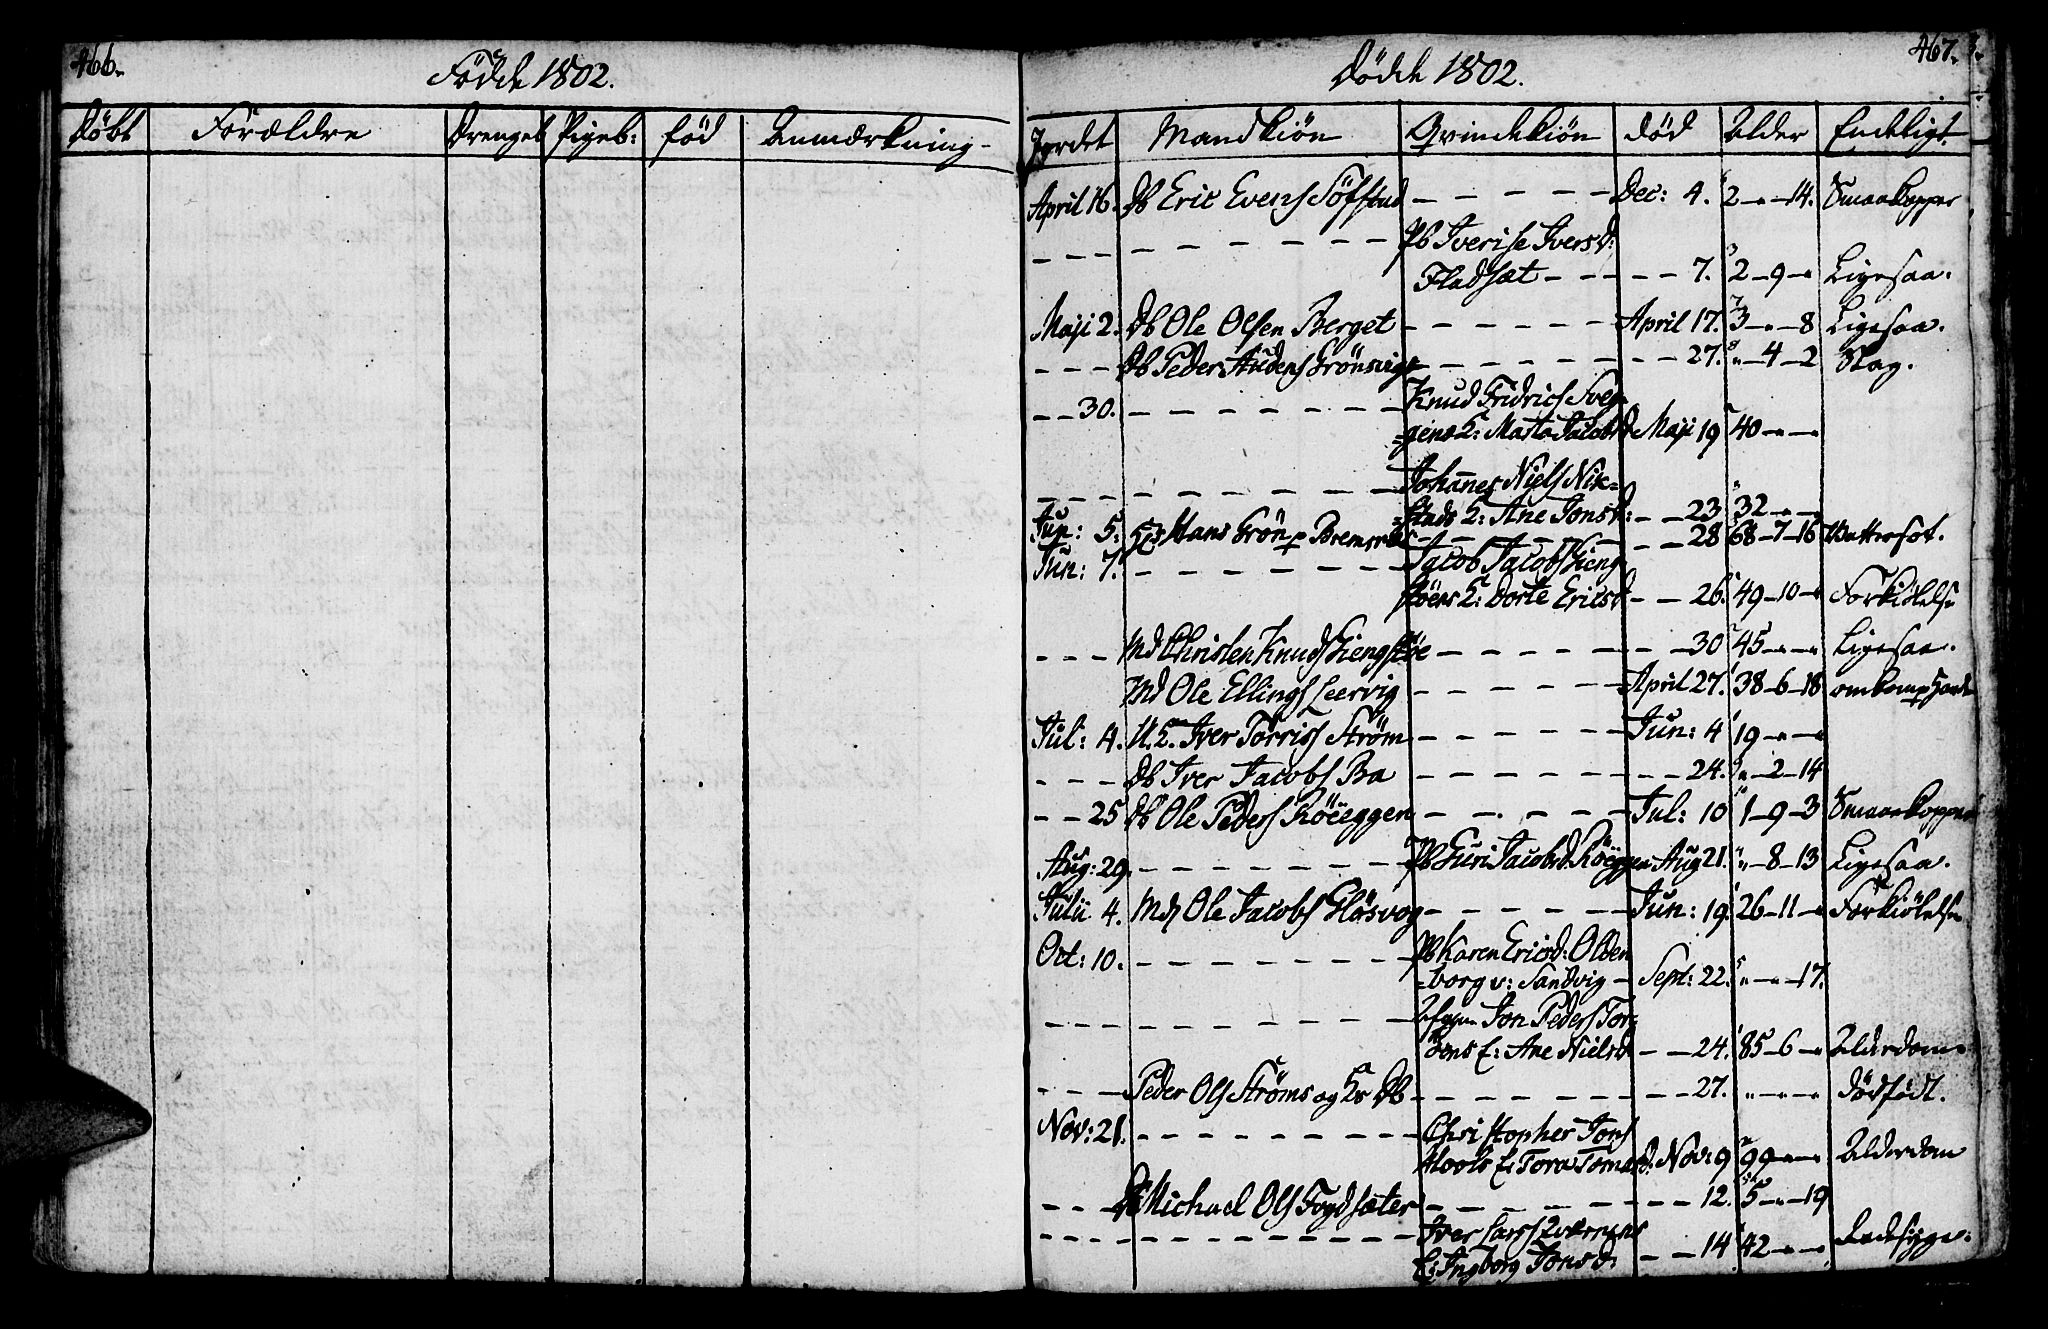 466.
Fødde 1802.
Døbt Forældre Drengeb Pigeb: fød Anmærkning-
467.
Dødde 1802.
Jordet Mandkiøn Qvindekiøn død Alder Endeligt.
April 16. Db Eric Evens - - - - - Dec: 4. 2-"-14. Smaakopper
- - - - - - - - - Pb Iverise Iversd:
Fladsæt - - - - - 7. 2-9-" Ligesaa.
Maji 2. Db Ole Olsen Berget - - - - - - April 17. 3-"-8 Ligesaa.
- - - Db Peder Audens Grønsvig - - - - - - - 27. "-4-2 Slag.
- - 30. - - - - - - - Knud Fridrics Sveg=
=gens K: Marta Jacobsd Maji 19 40-"-"
- - - - - - - - - Johanes Niels Nik=
=stads K: Ane Jonsd: - - 23 32-"-"
Jun: 5. Hans Grøn Bremsnes - - - - - - 28 68-7-16 Wattersot.
Jun: 7. - - - - - - - Jacob Jacobs Hengs
støens K: Dorte Ericsd - - 26. 49-10-" Forkiølelse
- - - Md Christen Knuds Hengstøe - - - - - - 30 45-"-" Ligesaa.
Md Ole Ellings Leervig - - - - - - April 27. 38-6-18
Jul: 4. U.K. Iver Torris Strøm - - - - - - Jun: 4 19-"-"
- - - Db Iver Jacobs Ba - - - - - - - 24. "-2-14
- - 25 Db Ole Peders Røeeggen - - - - - Jul: 10 1-9-3 Smaakopper
Aug: 29. - - - - - - Pb Guri Jacobsd. Røeggen Aug 21. "-8-13 Ligesaa.
Julii 4. Md Ole Jacobs Gløsvog - - - - - Jun: 19. 26-11-" Forkiølelse
Oct: 10. - - - - - - Pb Karen Ericsd: Olden
=borg v: Sandvig - Sept: 22. "-"-17.
- - - - - - - - - Jon Peders Tor=
K: Ane Nielsd - - 24. 85-6-" Alderdom
- - - Peder Ols Strøms og Kv Db - - - - - - - 27. "-"-" Dødfødt.
Nov: 21. - - - - - - - Christopher Jons
K: Tora Tomasd: Nov: 9 99-"-" Alderdom
- - - Db Michael Ols Fogdsæter - - - - - - - 12. 5-"-19
- - - - - - - - - Iver Lars
K: Ingborg Jonsd: - - 14 42-"-"